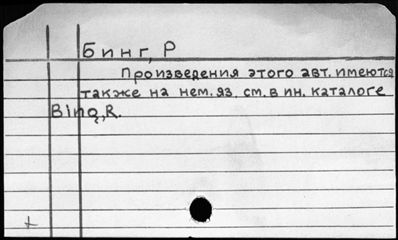 Бинг, Р
Произведения этого авт. имеются
также на нем. яз. см. в ин. каталоге
Bing, R.
+